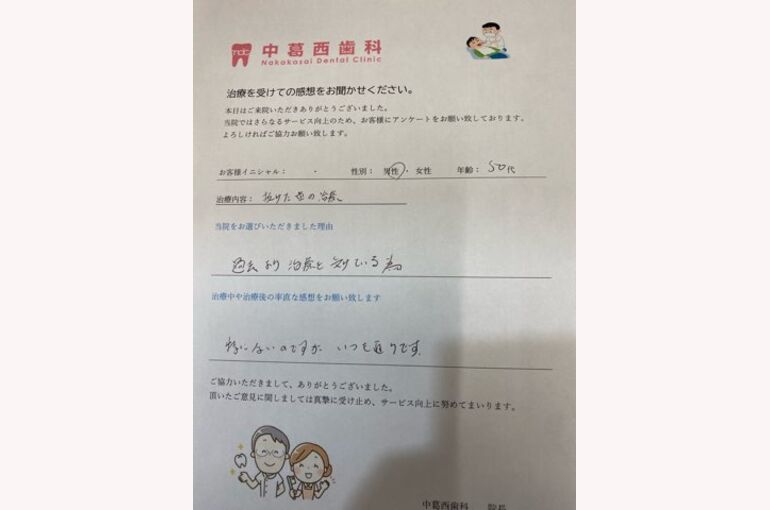 中葛西歯科
Nakakasai Dental Clinic
治療を受けての感想をお聞かせください。
本日はご来院いただきありがとうございました。
当院ではさらなるサービス向上のため、お客様にアンケートをお願い致しております。
よろしければご協力お願い致します。
お客様イニシャル： ・ 性別： 男性・女性 年齢： 50代
治療内容： 抜けた歯の治療
当院をお選びいただきました理由
過去より治療を ている為
治療中や治療後の率直な感想をお願い致します
特にないのですが いつも通りです。
ご協力いただきまして、ありがとうございました。
頂いたご意見に関しましては真摯に受け止め、サービス向上に努めてまいります。
中葛西歯科 院長